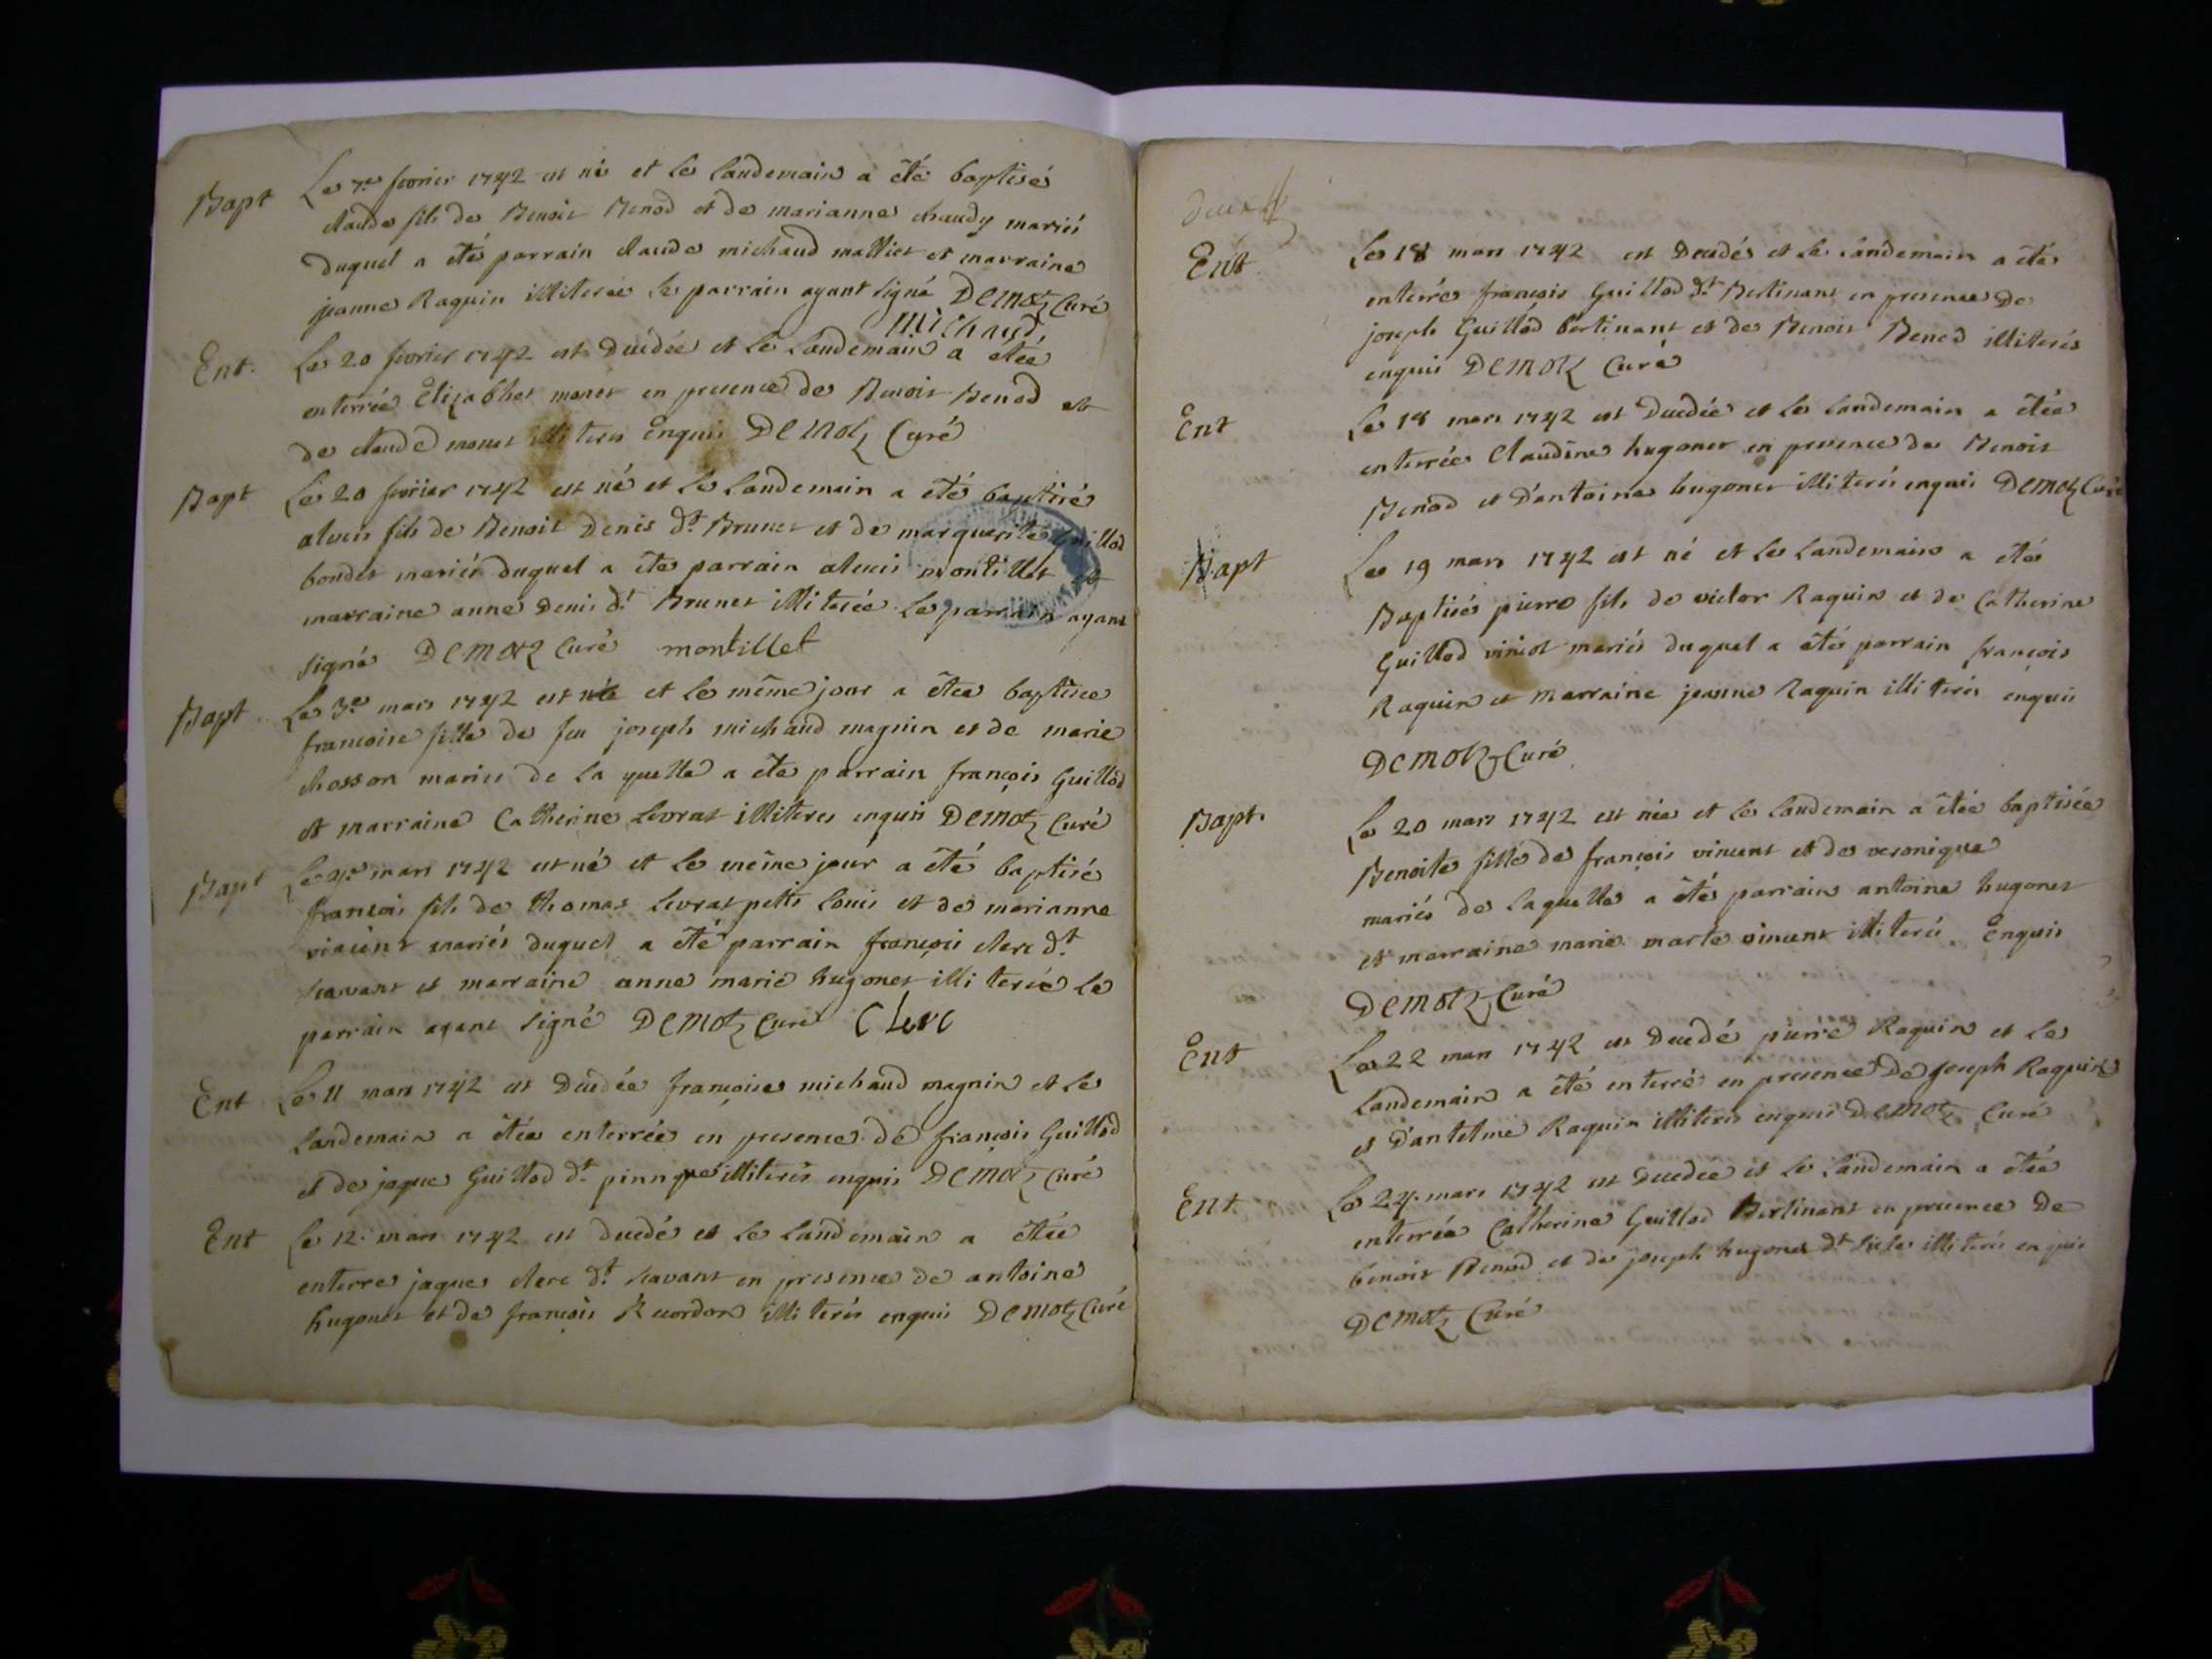 Bapt Le 7e fevrier 1742 est né et le landemain a été baptisé
claude fils de Benoit Benod et de marianne chaudy mariés
duquel a été parrain claude michaud mallier et marraine
jeanne Raquin illiterée le parrain ayant signé Demotz Curé
michaud
Ent. Le 20 fevrier 1742 est decédée et le landemain a étée
enterrée Elizabhet monet en presence de Benoit Benod et
de claude monet illiteres enquis Demotz Curé
Bapt Le 20 fevrier 1742 est né et le landemain a été baptisé
alexis fils de Benoit Denis dt Brunet et de marguerite Guillod
bondet mariés duquel a été parrain alexis montillet et
marraine anne Denis dt Brunet illiterée le parrain ayant
signé Demotz Curé montillet
Bapt Le 3e mars 1742 est née et le même jour a étée baptisee
francoise fille de feu joseph michaud magnin et de marie
chosson mariés de la quelle a été parrain françois Guillod
et marraine Catherine Levrat illiteres enquis Demotz Curé
Bapt Le 4e mars 1742 est né et le même jour a été baptisé
francois fils de thomas Levrat petit Louis et de marianne
vincent mariés duquel a été parrain françois clerc dt
scavant et marraine anne marie hugonet illiterée le
parrain ayant signé Demotz Curé Clerc
Ent Le 11 mars 1742 est decedée françoise michaud magnin et le
landemain a étée enterrée en presence de françois Guillod
et de jaque Guillod dt illiterés enquis Demotz Curé
Ent Le 12 mars 1742 est decedé et le landemain a étée
enterre jaques clerc dt scavant en presence de antoine
hugonet et de françois Reverdon illiterés enquis Demotz Curé
deux
Ent Le 18 mars 1742 est decedés et le landemain a été
enterrés françois Guillod dt Bertinant en presence de
joseph Guillod bertinant et de Benoit Benod illiterés
enquis Demotz Curé
Ent Le 18 mars 1742 est decedée et le landemain a étée
enterrée Claudine hugonet en presence de Benoit
Benod et d'antoine hugonet illiterés enquis Demotz Curé
Bapt Le 19 mars 1742 est né et le landemain a été
Baptisé pierre fils de victor Raquin et de Catherine
Guillod mariés duquel a été parrain françois
Raquin et marraine jeanne Raquin illiterés enquis
Demotz Curé
Bapt. Le 20 mars 1742 est née et le landemain a étée baptisée
Benoite fille de françois vincent et de veronique
mariés de laquelle a été parrain antoine hugonet
et marraine marie marte vincent illiterés Enquis
Demotz Curé
Ent Le 22 mars 1742 est decedé pierre Raquin et le
landemain a été enterré en presence de joseph Raquin
et d'antelme Raquin illiteres enquis Demotz Curé
Ent Le 24 mars 1742 est decedee et le landemain a étée
enterrée Catherine Guillod Bertinant en presence de
benoit Benod et de joseph hugonet dt illiterés enquis
Demotz Curé